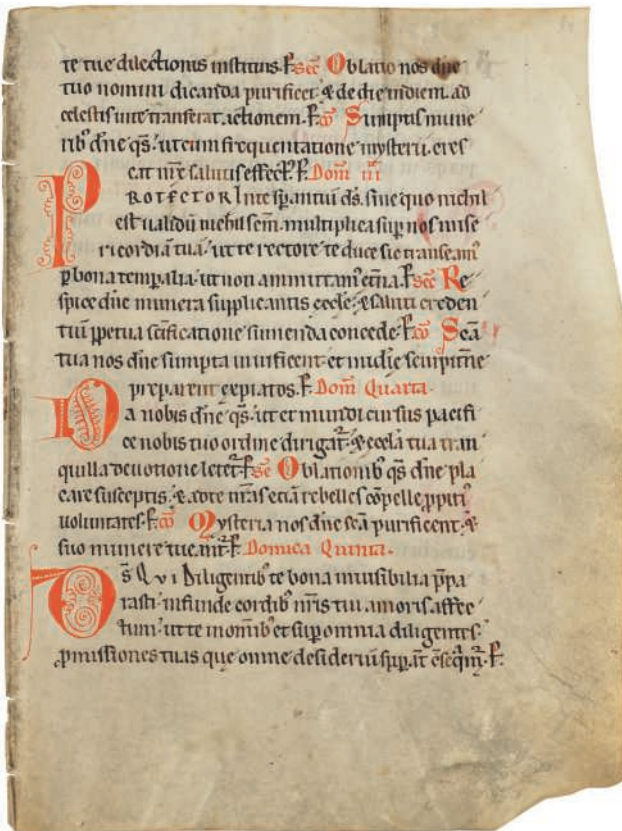 te tue dilectionis instituis. P̄. sec̄ Oblatio nos dn̄e
tuo nomini dicanda purificet. & de die indiem. ad
celestis uite transferat actionem. P̄. co᷒ Sumptis mune
rib; dn̄e q̄s. ut cum frequentatione mysterii. cres
cat nr̄e salutis effect᷒. P̄. Dom̄ iii
PROTECTOR Inte sp̄antiū ds̄. sine quo nichil
est ualidū nichil sc̄m. multiplica suꝑ nos mise
ricordiā tuā. ut te rectore te duce sic transeam᷒
ꝑ bona temꝑalia. ut non ammittam᷒ et̄na. P̄. sec̄ Re
spice dn̄e munera supplicantis eccl̄e. & saluti creden
tiū ꝑpetua sc̄ificatione sumenda concede. P̄. co᷒ Sc̄a
tua nos dn̄e sumpta uiuificent. et mīdie sempitn̄e
preparent expiatos. P̄. Dom̄ Quarta.
Da nobis dn̄e q̄s. ut et mundi cursus pacifi
ce nobis tuo ordine dirigat᷑. & eccl̄a tua tran
quilla deuotione letet᷑. P̄. se Oblationib; q̄s dn̄e pla
care susceptis. & ad te nr̄as etiā rebelles cōpelle ꝓpiti᷒
uoluntates. P̄. co᷒ Mysteria nos dn̄e sc̄a purificent. &
suo munere tueant᷑. P̄. Domica Quinta.
Ds̄ Qui Diligentib; te bona inuisibilia p̄pa
rasti. infunde cordib; nr̄is tui amoris affec
tum. ut te in om̄ib; et suꝑ omnia diligentes.
ꝓmissiones tuas que omne desideriū suꝑant c̄seq̄m᷑. P̄.